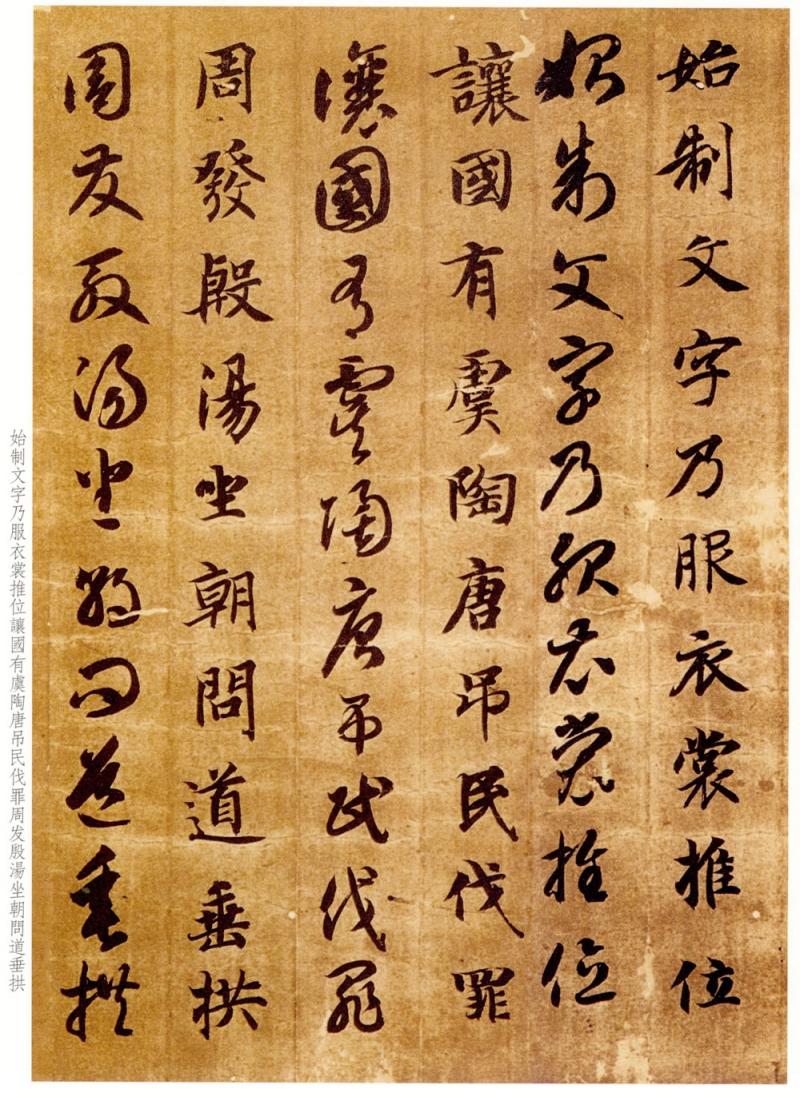 始制文字乃服衣裳推位
始制文字乃服衣裳推位
讓國有虞陶唐吊民伐罪
讓國有虞陶唐吊民伐罪
周發殷湯坐朝問道垂拱
周發殷湯坐朝問道垂拱
始制文字乃服衣裳推位讓國有虞陶唐吊民伐罪周发殷湯坐朝問道垂拱